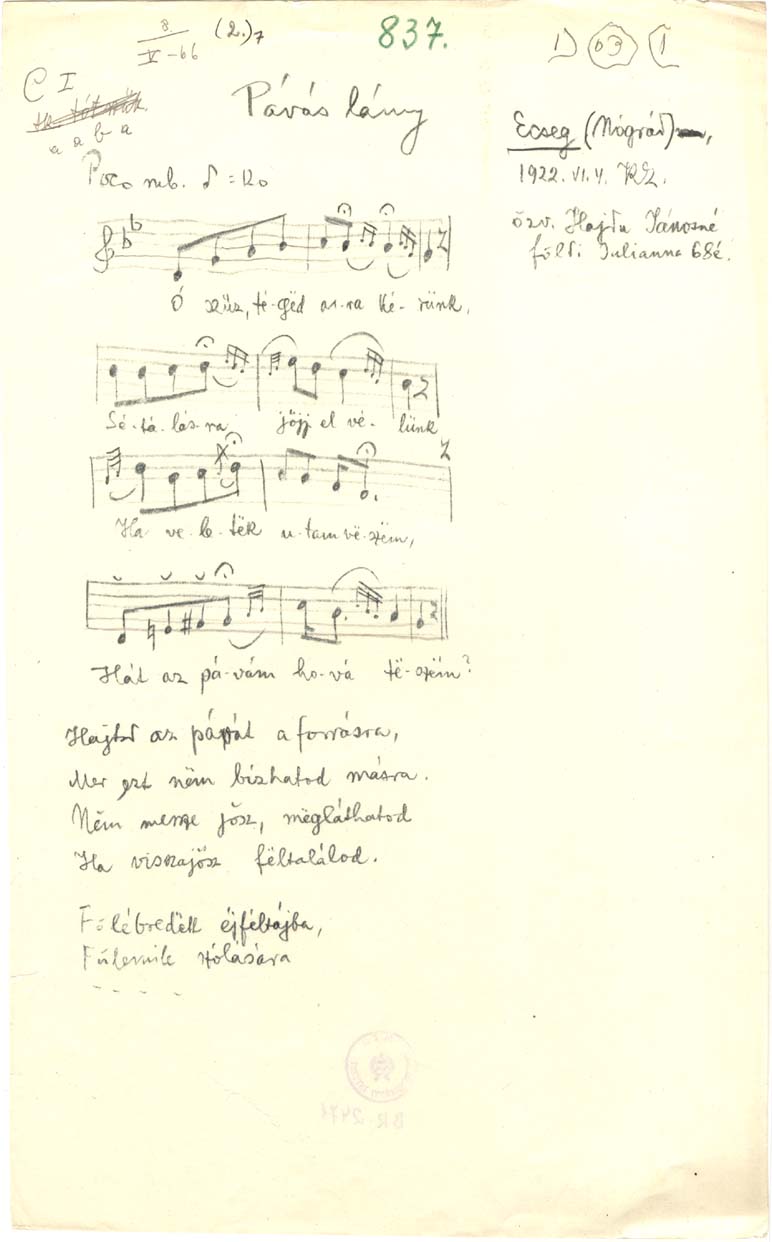 8
V-66
(2.)7
837.
1) 63 I
C I
a a b a
Pávás lány
Ecseg (Nógrád),
1922. VI. 4. KZ.
özv. Hajdu Jánosné
földi Julianna 68é.
Poco rub. ♪ = 120
Ó szűz, té-gëd ar-ra ké-rünk,
Sé-tá-lás-ra jőjj el vé-lünk
Ha ve-le-tëk u-tam vë-szëm,
Hát az pá-vám ho-vá të-szëm?
Hajtsd az pávát a forrásra,
Mer ezt nëm bízhatod másra.
Nëm messze jősz, mëgláthatod
Ha visszajősz fëltalálod.
Fölébredëtt éjféltájba,
Fülemile szólására
- - - -
BR 2471